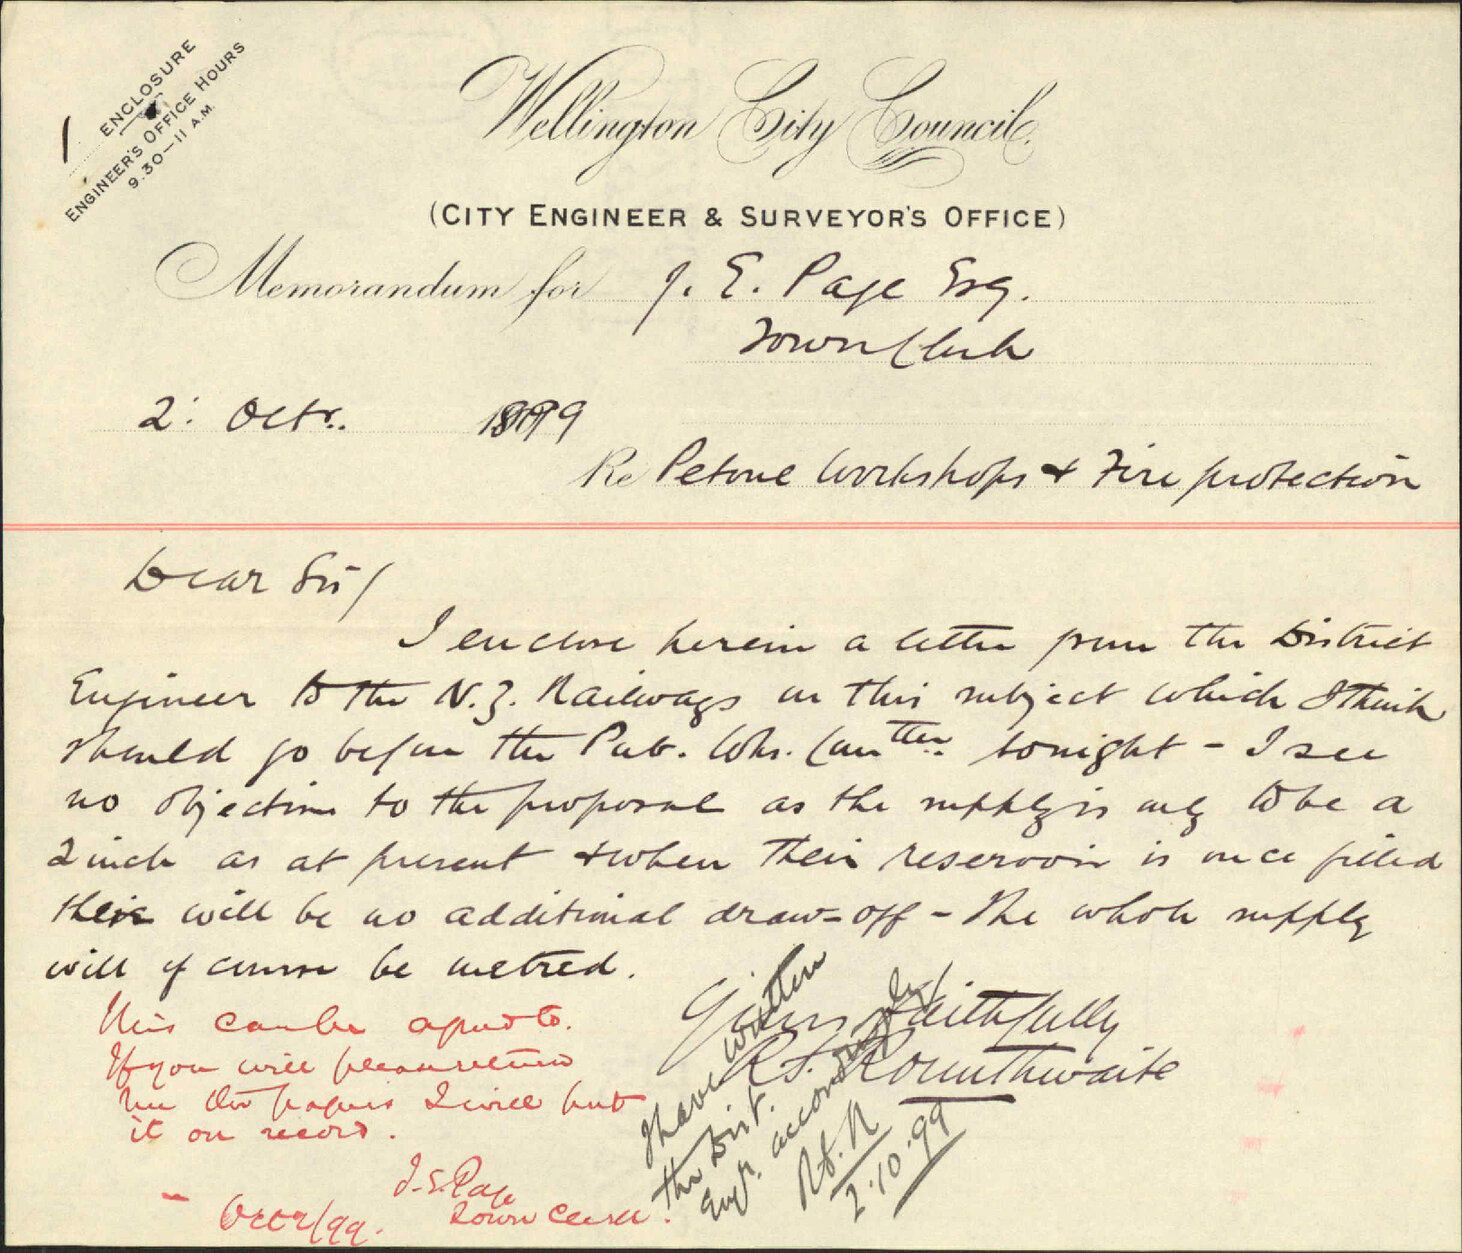 1 ENCLOSURE
ENGINEER'S OFFICE HOURS
9.30—11 A.M.
Wellington City Council.
(CITY ENGINEER & SURVEYOR'S OFFICE)
Memorandum for J. E. Page Esq.
Town Clerk
2: Octr. 1899
Re Petone Workshops & Fire protection
Dear Sir/
I enclose herein a letter from the District
Engineer to the N.Z. Railways on this subject which I think
should go before the Pub. Wks. Comttee. tonight - I see
no objection to the proposal as the supply is only to be a
2 inch as at present & when their reservoir is once filled
there will be no additional draw-off - The whole supply
will of course be metred.
Yours faithfully
R. S. Rounthwaite
This can be agreed to.
If you will please return
me the papers I will put
it on record.
J.E. Page
Town Clerk.
Oct 2/99.
I have written
the Dist.
Engr. accordingly
R.S.R
2.10.99